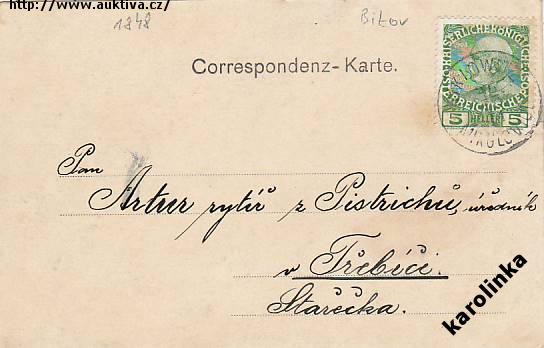 http://www.auktiva.cz/
1848
Bítov
Correspondenz-Karte.
KAISERLICHE KÖNIGLICHE
ÖSTERREICHISCHE POST
5 HELLER 5
Pan
Artur rytíř z Pistrichů, úředník
v Třebíči.
Stařečka.
karolinka